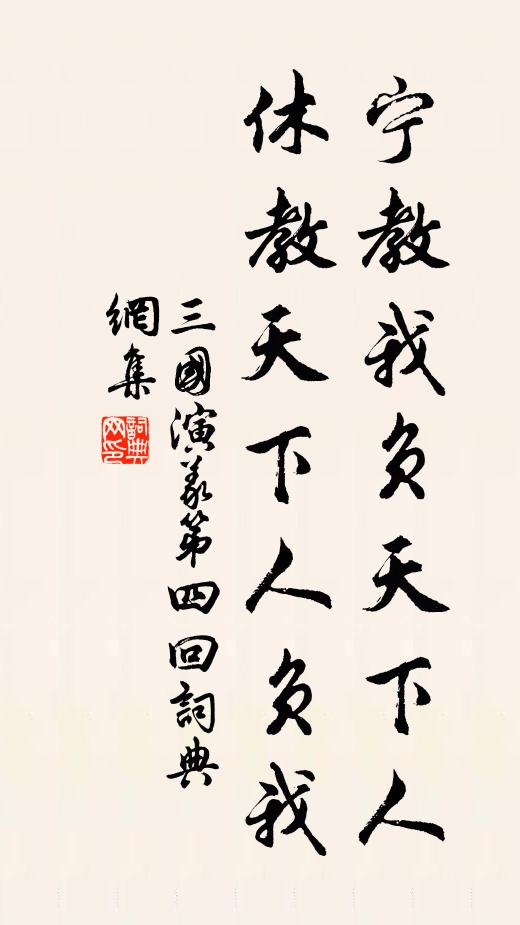 宁教我负天下人
休教天下人负我
三國演义第四回詞典
網集
詞典网印